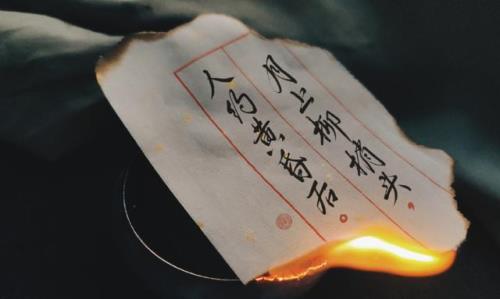 月上柳梢头，
人约黄昏后。